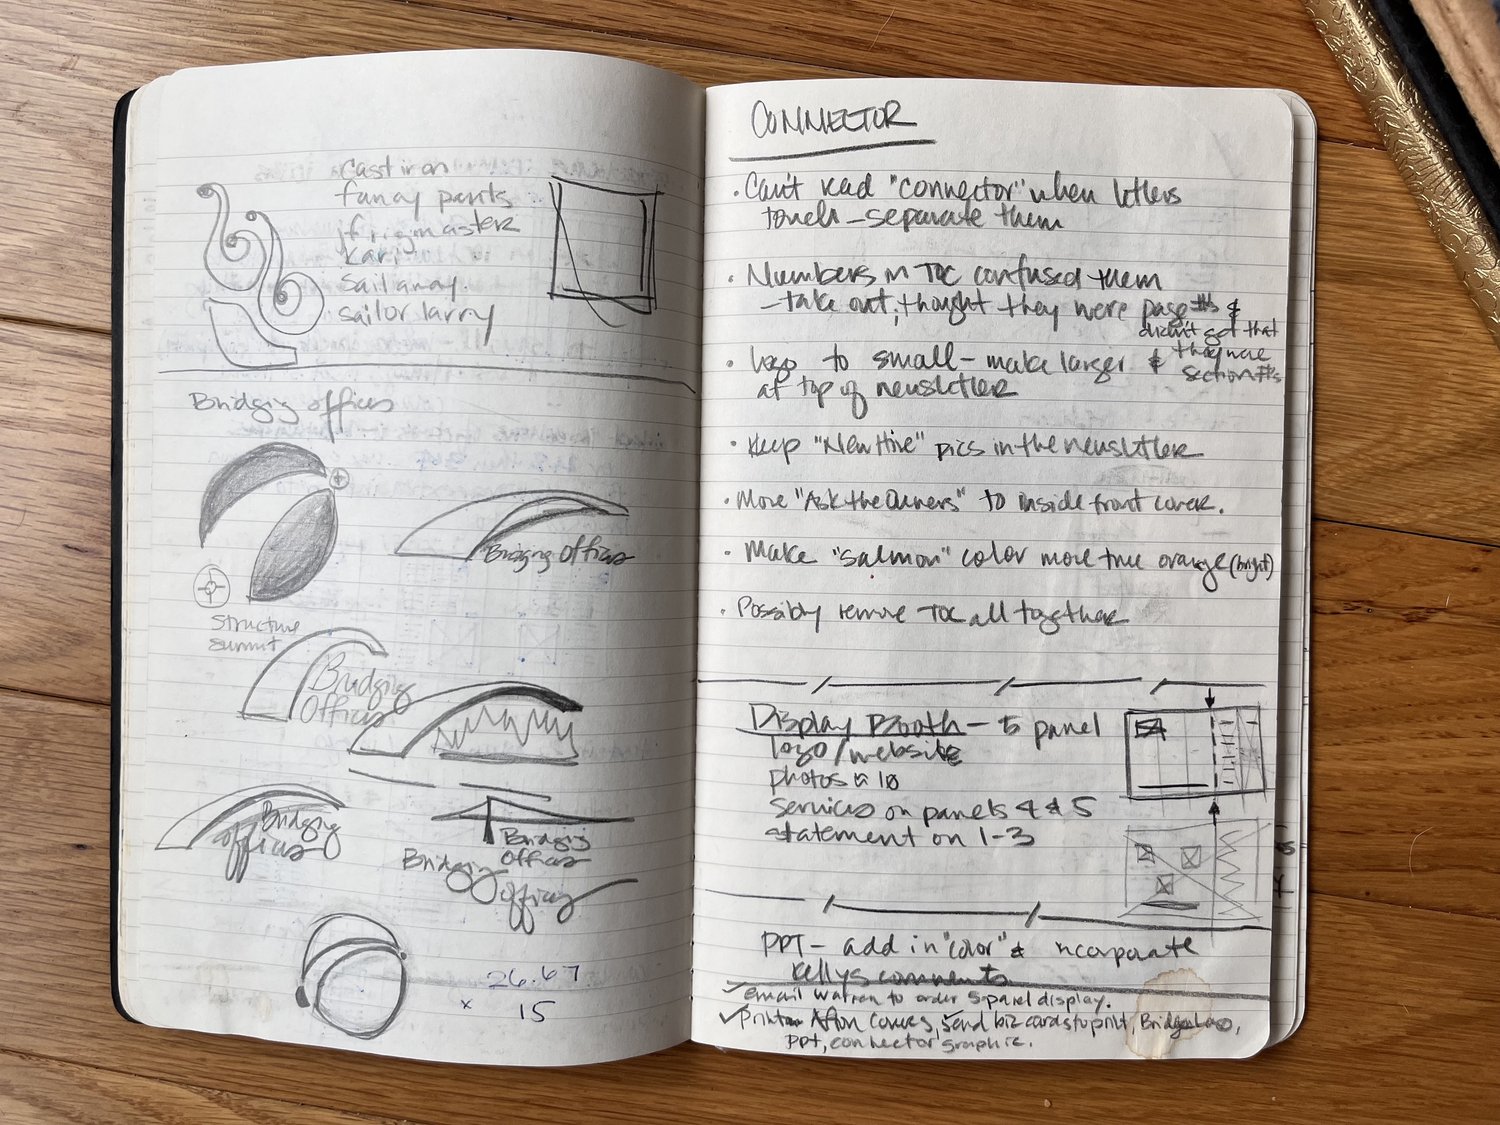 Cast iron
fancy pants
frigmaster
Kari
Sail away
sailor larry
Bridging offices
Bridging Offices
Structure
Summit
Bridging
Offices
Bridging
offices
Bridging
Offices
Bridging
offices
26.67
× 15
CONNECTOR
· Can't read "connector" when letters
touch – separate them
· Numbers in TOC confused them
– take out, thought they were page #s &
didn't get that
they were
section #s
· logo to small – make larger &
at top of newsletter
· Keep "New Hire" pics in the newsletter
· Move "Ask the Owners" to inside front cover.
· Make "salmon" color more true orange (bright)
· Possibly remove TOC all together
Display Booth – 5 panel
logo/website
photos 10
services on panels 4 & 5
statement on 1-3
PPT – add in "color" & incorporate
Kellys comments
✓ email Warren to order 5 panel display.
✓ Print Covers, ✓ Send biz cards to print, Bridge Logo,
PPT, connector graphic.